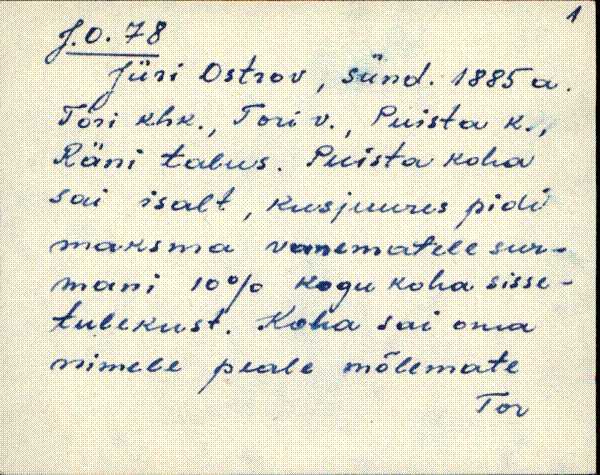 1
J.O. 78
Jüri Ostrov, sünd. 1885 a.
Tori khk., Tori v., Puista k.,
Räni talus. Puista koha
sai isalt, kusjuures pidi
maksma vanematele sur-
mani 10% kogu koha sisse-
tulekust. Koha sai oma
nimele peale mõlemate
Tor